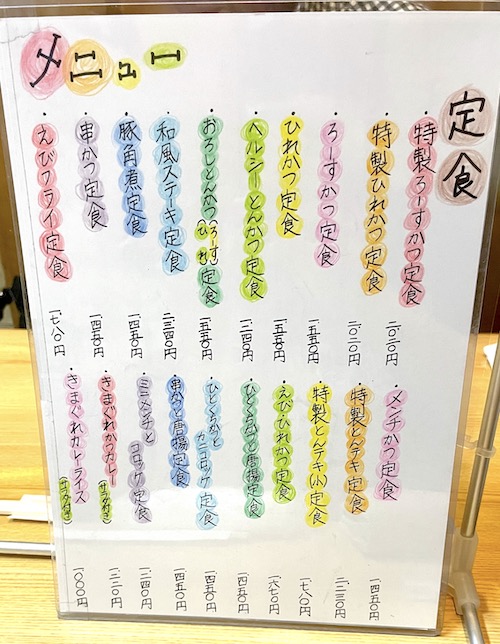 メニュー
定食
・特製ろーすかつ定食 二〇二〇円
・特製ひれかつ定食 二〇二〇円
・ろーすかつ定食 一五五〇円
・ひれかつ定食 一五五〇円
・ヘルシーとんかつ定食 一二四〇円
・おろしとんかつ(ろーす)(ひれ)定食 一五五〇円
・和風ステーキ定食 二三四〇円
・豚角煮定食 一四五〇円
・串かつ定食 一四五〇円
・えびフライ定食 一七八〇円
・メンチかつ定食 一四五〇円
・特製とんテキ定食 二二三〇円
・特製とんテキ(小)定食 一七八〇円
・えびひれかつ定食 一六七〇円
・ひとくちかつと唐揚定食 一四五〇円
・ひとくちかつとカニコロッケ定食 一四五〇円
・串かつと唐揚定食 一四五〇円
・ミニメンチとコロッケ定食 一二四〇円
・きまぐれかつカレー(サラダ付き) 一二二〇円
・きまぐれカレーライス(サラダ付き) 一〇〇〇円